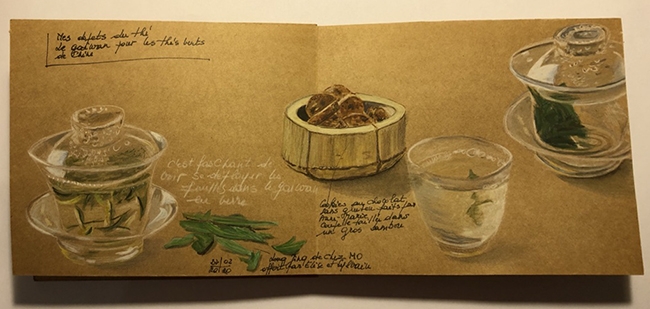 Mes objets du thé
Le gaiwan pour les thés verts
de Chine
c'est fascinant de
voir se déployer les
feuilles dans le gaiwan
en verre
Cookies au chocolat
sans gluten faits par
Anne-Marie
coupelle taillée dans
un gros bambou
22/02
2020
Long Jing de chez MO
offert par Elise et Sylvain